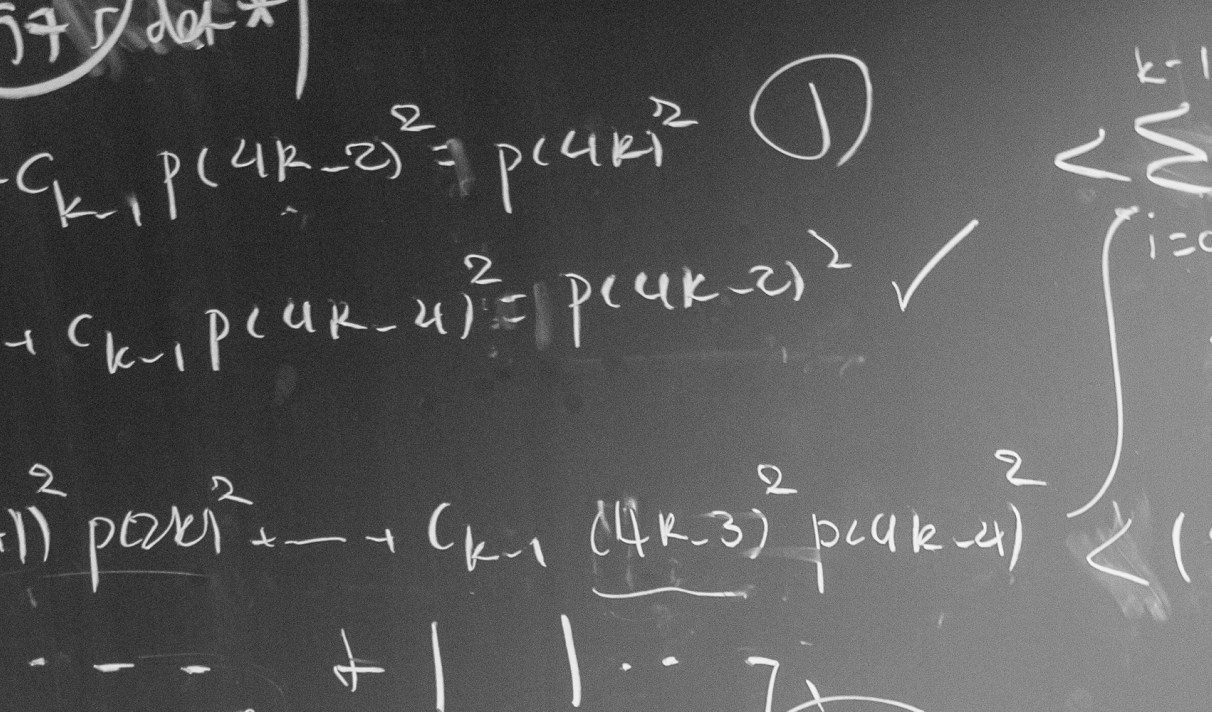 C_{k-1} p(4k-2)^2 = p(4k)^2 ①
+ C_{k-1} p(4k-4)^2 = p(4k-2)^2 ✓
1)^2 p(2k)^2 + — + C_{k-1} (4k-3)^2 p(4k-4)^2 < (
< Σ k-1 i=0